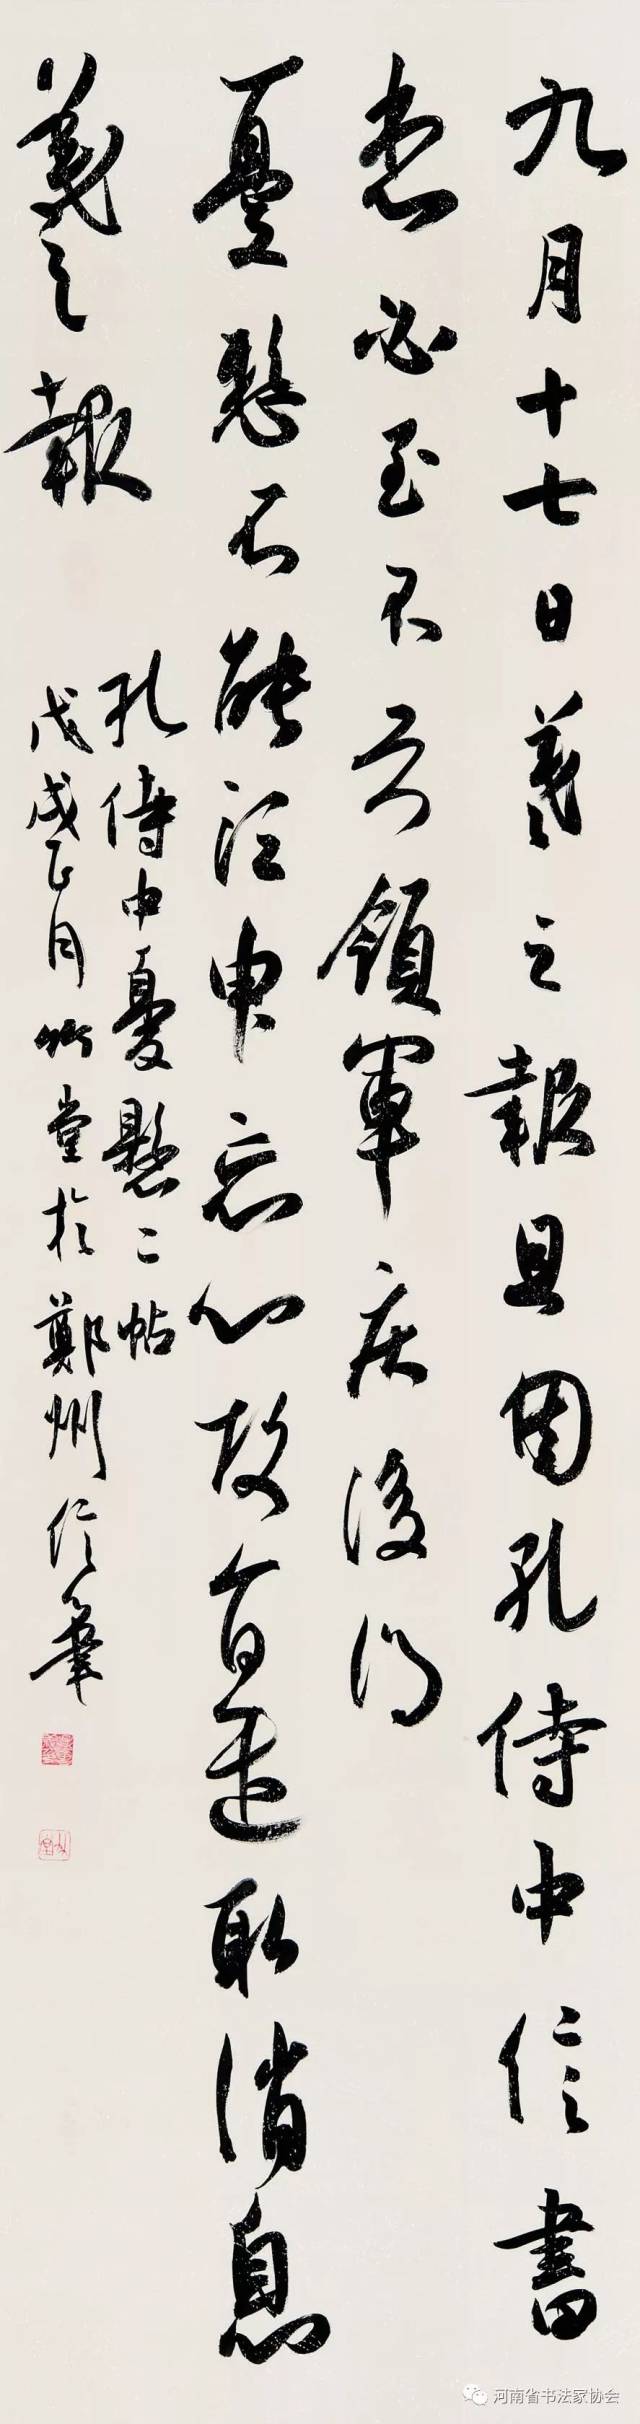 九月十七日羲之報且因孔侍中信書
想必至不知領軍疾後問
憂懸不能須臾忘心故旨遣取消息
羲之報
孔侍中憂懸二帖
戊戌正月竹堂於鄭州信筆
河南省书法家协会